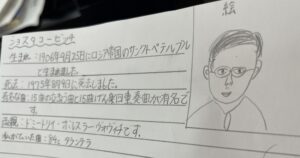 ショスタコービッチ
生まれ: 1906年9月25日にロシア帝国のサンクトペテルブルグ
で生まれました。
死去: 1975年8月9日に死去しました。
有名な曲: 15曲の交響曲と15曲の弦楽四重奏曲が有名で
す。
両親: ドミートリイ・ボレスラーヴォヴィチです。
私がきいた曲:
タランテラ
絵